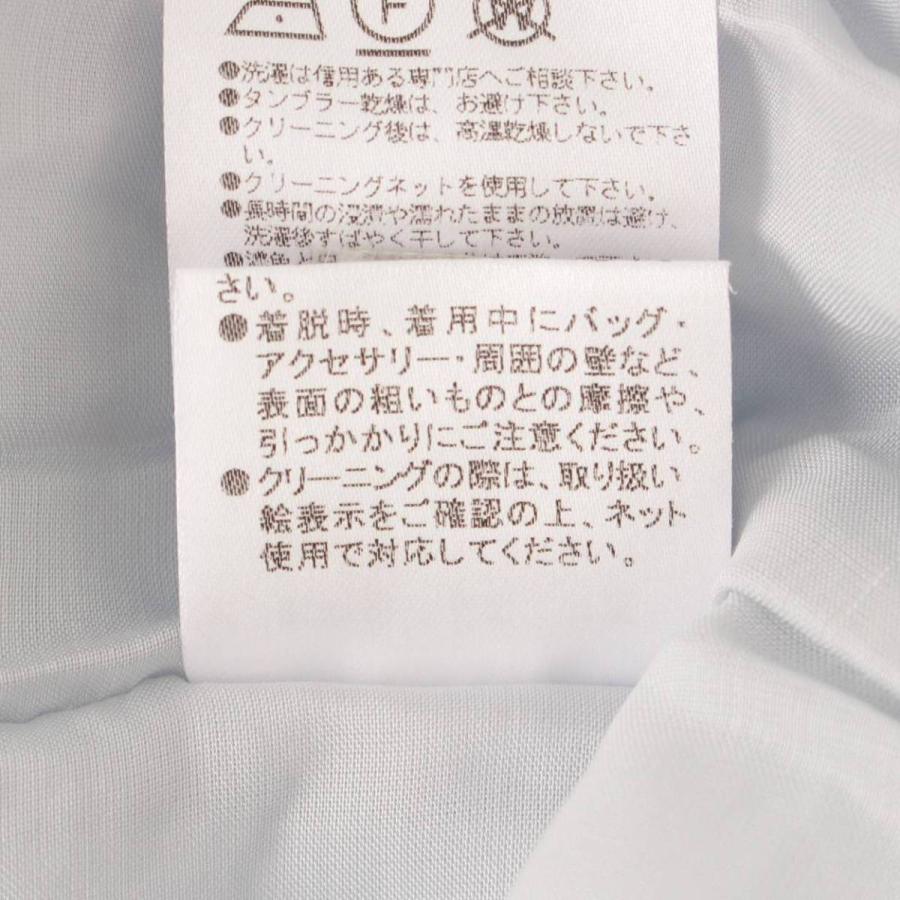 F
W
●洗濯は信用ある専門店へご相談下さい。
●タンブラー乾燥は、お避け下さい。
●クリーニング後は、高温乾燥しないで下さ
い。
●クリーニングネットを使用して下さい。
●長時間の浸漬や濡れたままの放置は避け、
洗濯後すばやく干して下さい。
●濃色と
さい。
●着脱時、着用中にバッグ・
アクセサリー・周囲の壁など、
表面の粗いものとの摩擦や、
引っかかりにご注意ください。
●クリーニングの際は、取り扱い
絵表示をご確認の上、ネット
使用で対応してください。